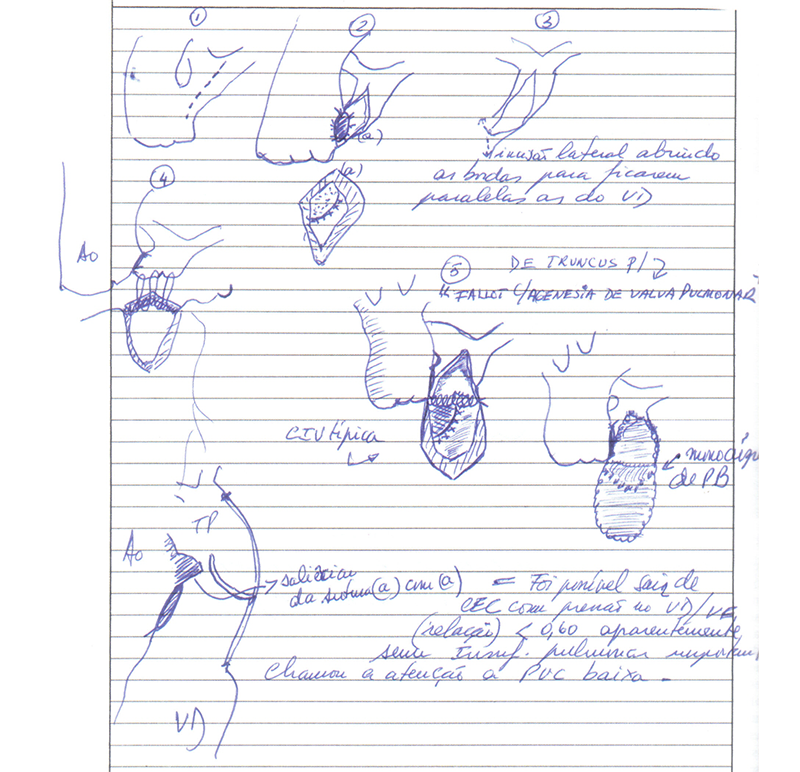 1
2
3
(a)
(a)
incisão lateral abrindo
as bordas para ficarem
paralelas as do VD
4
Ao
5
DE TRUNCUS P/
"FALLOT C/AGENESIA DE VALVA PULMONAR"
CIV típica
de PB
TP
Ao
VD
da sutura (a) com (a)
= Foi possível sair de
CEC com pressão no VD/VE
(relação) < 0,60 aparentemente
sem Insuf. pulmonar
Chamou a atenção a PVC baixa.